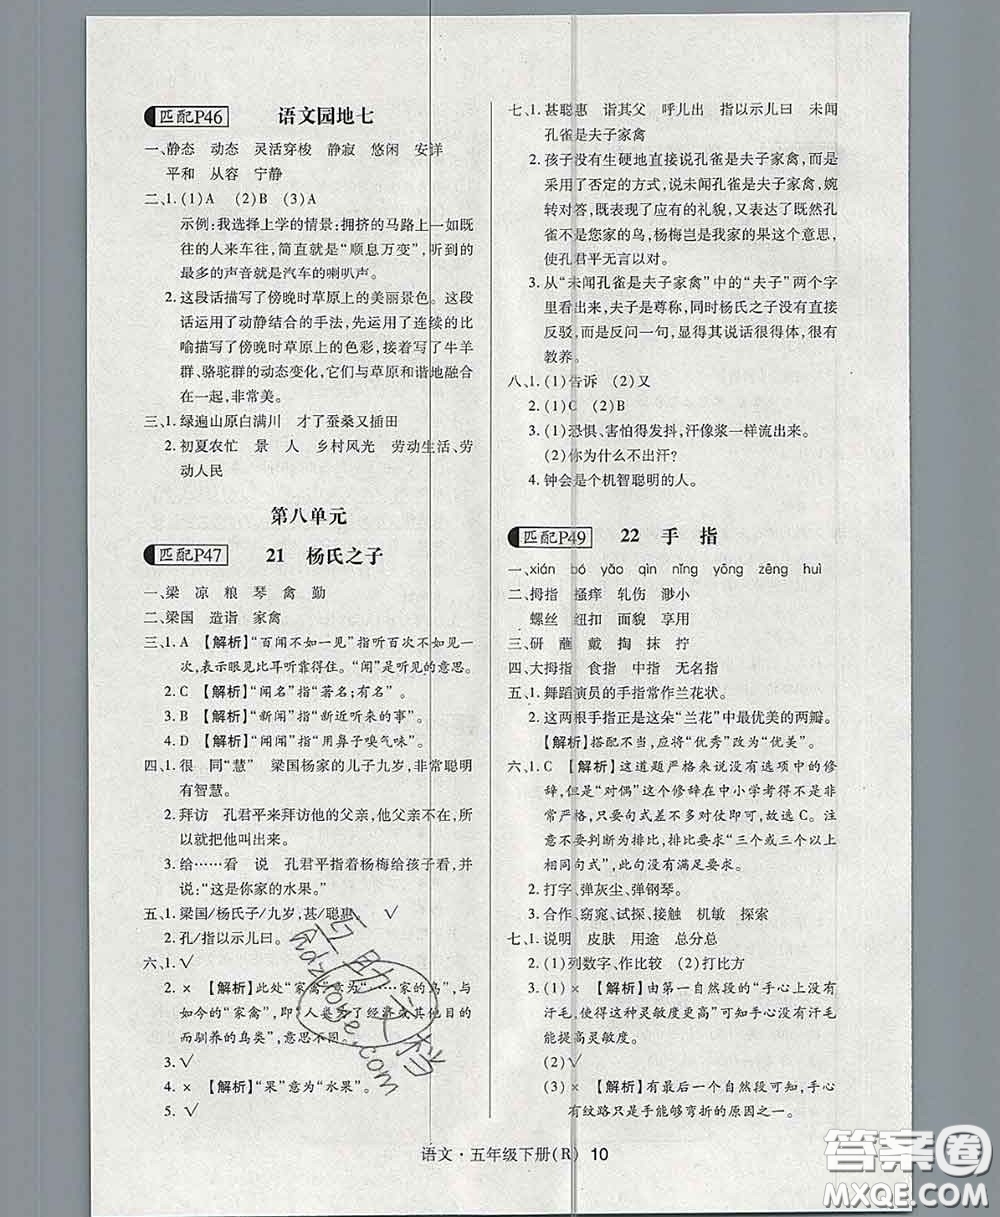 匹配P46 语文园地七
一、静态 动态 灵活穿梭 静寂 悠闲 安详
平和 从容 宁静
二、1. (1)A (2)B (3)A
示例:我选择上学的情景:拥挤的马路上一如既
往的人来车往,简直就是“顺息万变”,听到的
最多的声音就是汽车的喇叭声。
2. 这段话描写了傍晚时草原上的美丽景色。这段
话运用了动静结合的手法,先运用了连续的比
喻描写了傍晚时草原上的色彩,接着写了牛羊
群、骆驼群的动态变化,它们与草原和谐地融合
在一起,非常美。
三、1. 绿遍山原白满川 才了蚕桑又插田
2. 初夏农忙 景 人 乡村风光 劳动生活、劳
动人民
第八单元
匹配P47 21 杨氏之子
一、梁 凉 粮 琴 禽 勤
二、梁国 造诣 家禽
三、1. A 【解析】“百闻不如一见”指听百次不如见一
次,表示眼见比耳听靠得住。“闻”是听见的意思。
2. C 【解析】“闻名”指“著名;有名”。
3. B 【解析】“新闻”指“新近听来的事”。
4. D 【解析】“闻闻”指“用鼻子嗅气味”。
四、1. 很 同“慧” 梁国杨家的儿子九岁,非常聪明
有智慧。
2. 拜访 孔君平来拜访他的父亲,他父亲不在,所
以就把他叫出来。
3. 给……看 说 孔君平指着杨梅给孩子看,并
说:“这是你家的水果。”
五、1. 梁国/杨氏子/九岁,甚/聪惠。 √
2. 孔/指以示儿曰。
六、1. √
2. × 【解析】此处“家禽”意为“……家的鸟”,与
如今的“家禽”,即“人类为了经济或其他目的
而驯养的鸟类”,意思不同。
3. √
4. × 【解析】“果”意为“水果”。
5. √
七、1. 甚聪惠 诣其父 呼儿出 指以示儿曰 未闻
孔雀是夫子家禽
2. 孩子没有生硬地直接说孔雀是夫子家禽,而是
采用了否定的方式,说未闻孔雀是夫子家禽,婉
转对答,既表现了应有的礼貌,又表达了既然孔
雀不是您家的鸟,杨梅岂是我家的果这个意思,
使孔君平无言以对。
3. 从“未闻孔雀是夫子家禽”中的“夫子”两个字
里看出来,夫子是尊称,同时杨氏之子没有直接
反驳,而是反问一句,显得其说话很得体,很有
教养。
八、1. (1)告诉 (2)又
2. (1)C (2)B
3. (1)恐惧、害怕得发抖,汗像浆一样流出来。
(2)你为什么不出汗?
4. 钟会是个机智聪明的人。
匹配P49 22 手 指
一、xián bó yāo qìn nǐng yōng zēng huì
二、拇指 搔痒 轧伤 渺小
螺丝 纽扣 面貌 享用
三、研 蘸 戴 掏 抹 拧
四、大拇指 食指 中指 无名指
五、1. 舞蹈演员的手指常作兰花状。
2. 这两根手指正是这朵“兰花”中最优美的两瓣。
【解析】搭配不当,应将“优秀”改为“优美”。
六、1. C 【解析】这道题严格来说没有选项中的修
辞,但是“对偶”这个修辞在中小学考得不是非
常严格,只要句式差不多对仗即可,故选C。注
意不要判断为排比,排比要求“三个或三个以上
相同句式”,此句没有满足要求。
2. 打字、弹灰尘、弹钢琴。
3. 合作、窈窕、试探、接触 机敏 探索
七、1. 说明 皮肤 用途 总分总
2. (1)列数字、作比较 (2)打比方
3. (1) × 【解析】由第一自然段的“手心上没有
汗毛,使得这种灵敏度更高”可知手心没有汗毛
能提高灵敏度。
(2) √
(3) × 【解析】有最后一个自然段可知,手心
有纹路只是手能够弯折的原因之一。
互助文档
hdzuoye.com
语文·五年级下册(R) 10
答案圈
MXQE.COM